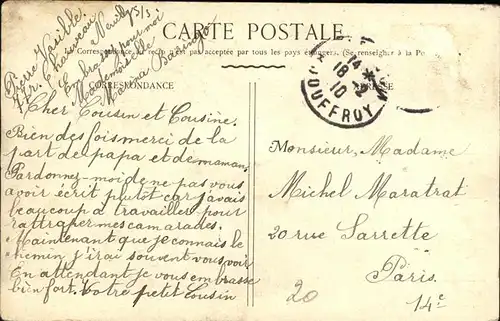 CARTE POSTALE
La Correspondance au recto n'est pas acceptée par tous les pays étrangers. (Se renseigner à la Poste)
CORRESPONDANCE
Pierre
7 r. Chauveau
à Neuilly s/s
Embrasse pour moi
Mademoiselle
14 *
18 -2
10
JOUFFROY
Cher Cousin et Cousine.
Bien des fois merci de la
part de papa et de maman.
Pardonnez-moi de ne pas vous
avoir écrit plutôt car j'avais
beaucoup a travailler pour
rattraper mes camarades.
Maintenant que je connais le
chemin j'irai souvent vous voir
En attendant je vous embrasse
bien fort. Votre petit Cousin
Monsieur, Madame
Michel Maratrat
20 rue Sarrette
Paris.
14e
20